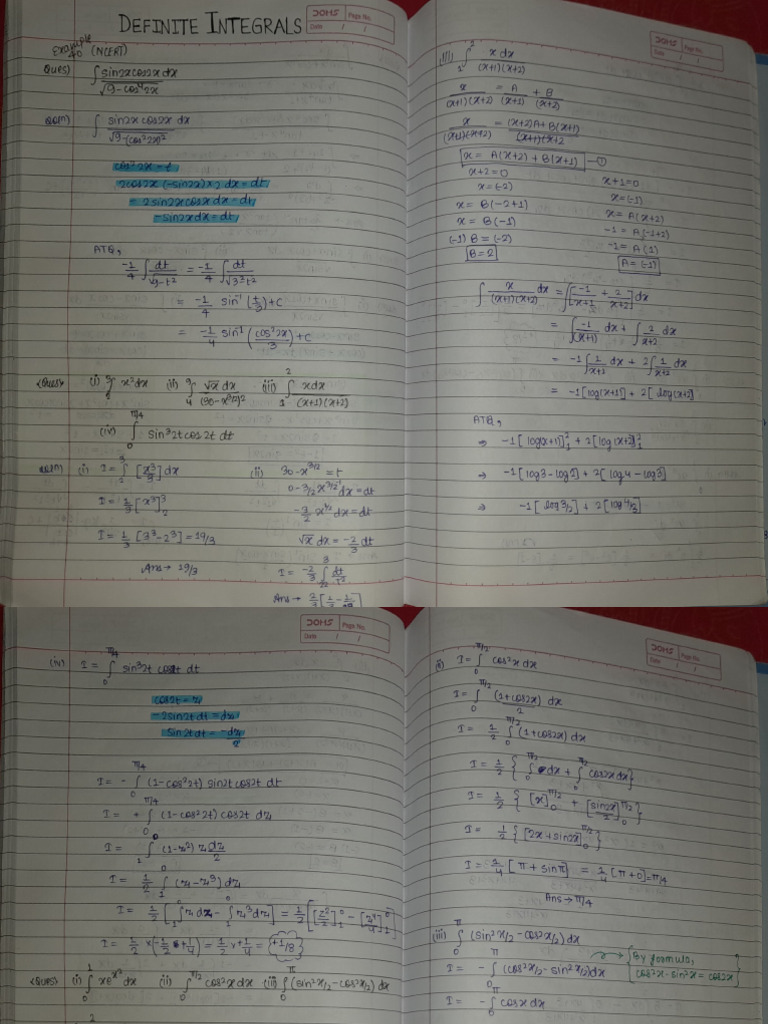 DEFINITE INTEGRALS
DOMS Page No.
Date / /
Example 40 (NCERT)
Ques) ∫ sin2x cos2x dx / √9-cos⁴2x
Soln) ∫ sin2x cos2x dx / √9-(cos²2x)²
cos²2x = t
2cos2x (-sin2x) x 2 dx = dt
= 2sin2x cosx dx = dt
-sin2x dx = dt
ATQ,
-1/4 ∫ dt/√9-t² = -1/4 ∫ dt/√3²t²
= -1/4 sin⁻¹(t/3)+c
= -1/4 sin⁻¹(cos²2x/3)+c
<Ques> (i) ∫ x²dx (ii) ∫₄⁹ √x dx/(30-x^3/2)² (iii) ∫₁² xdx/(x+1)(x+2)
(iv) ∫₀^π/4 sin³2t cos2t dt
Soln) (i) I = ∫₂³ [x³/3] dx
I = 1/3 [x³]³₂
I = 1/3 [3³-2³] = 19/3
Ans → 19/3
(ii) 30-x^3/2 = t
0-3/2 x^3/2-1 dx = dt
-3/2 x^1/2 dx = dt
√x dx = -2/3 dt
I = -2/3 ∫₂₂³ dt/t²
Ans →
DOMS Page No.
Date / /
(iii) ∫₁² x dx/(x+1)(x+2)
x/(x+1)(x+2) = A/(x+1) + B/(x+2)
x/(x+1)(x+2) = (x+2)A+B(x+1)/(x+1)(x+2
x = A(x+2) + B(x+1) —①
x+2=0
x=(-2)
x = B(-2+1)
x = B(-1)
(-1) B = (-2)
B=2
x+1=0
x=(-1)
x = A(x+2)
-1 = A(-1+2)
-1 = A(1)
A = (-1)
∫ x/(x+1)(x+2) dx = ∫[-1/x+1 + 2/x+2] dx
= ∫ -1/(x+1) dx + ∫ 2/x+2 dx
= -1∫ 1/x+1 dx + 2∫ 1/x+2 dx
= -1[log(x+1)] + 2[log(x+2]
ATQ,
⇒ -1[log(x+1)]²₁ + 2[log(x+2)]²₁
⇒ -1[log3-log2] + 2[log4-log3]
⇒ -1[log3/2] + 2[log4/3]
DOMS Page No.
Date / /
(iv) I = ∫₀^π/4 sin³2t cos2t dt
cos2t = u
-2sin2t dt = du
sin2t dt = -du/2
I = -∫₀^π/4 (1-cos²2t) sin2t cos2t dt
I = +∫₀^π/4 (1-cos²2t) cos2t du
I = ∫₁⁰ (1-u²) u du/2
I = 1/2 ∫₁⁰ (u-u³) du
I = 1/2 [∫₁⁰ u du - ∫₁⁰ u³ du] = 1/2 [[u²/2]₁⁰ - [u⁴/4]₁⁰
I = 1/2 x (-1/2 + 1/4) = 1/2 x 1/4 = +1/8
<Ques> (i) ∫₀¹ xe^x² dx (ii) ∫₀^π/2 cos²x dx (iii) ∫₀^π (sin²x/2-cos²x/2) dx
DOMS Page No.
Date / /
ii) I = ∫₀^π/2 cos²x dx
I = ∫₀^π/2 (1+cos2x)/2 dx
I = 1/2 ∫₀^π/2 (1+cos2x) dx
I = 1/2 {∫₀^π/2 dx + ∫₀^π/2 cos2x dx}
I = 1/2 {[x]₀^π/2 + [sin2x/2]₀^π/2}
I = 1/2 {[2x+sin2x]₀^π/2}
I = 1/4 [π + sinπ] = 1/4 [π+0] = π/4
Ans → π/4
(iii) ∫₀^π (sin²x/2-cos²x/2) dx
I = -∫₀^π (cos²x/2-sin²x/2)dx
By formula,
cos²x-sin²x = cos2x
I = -∫₀^π cosx dx